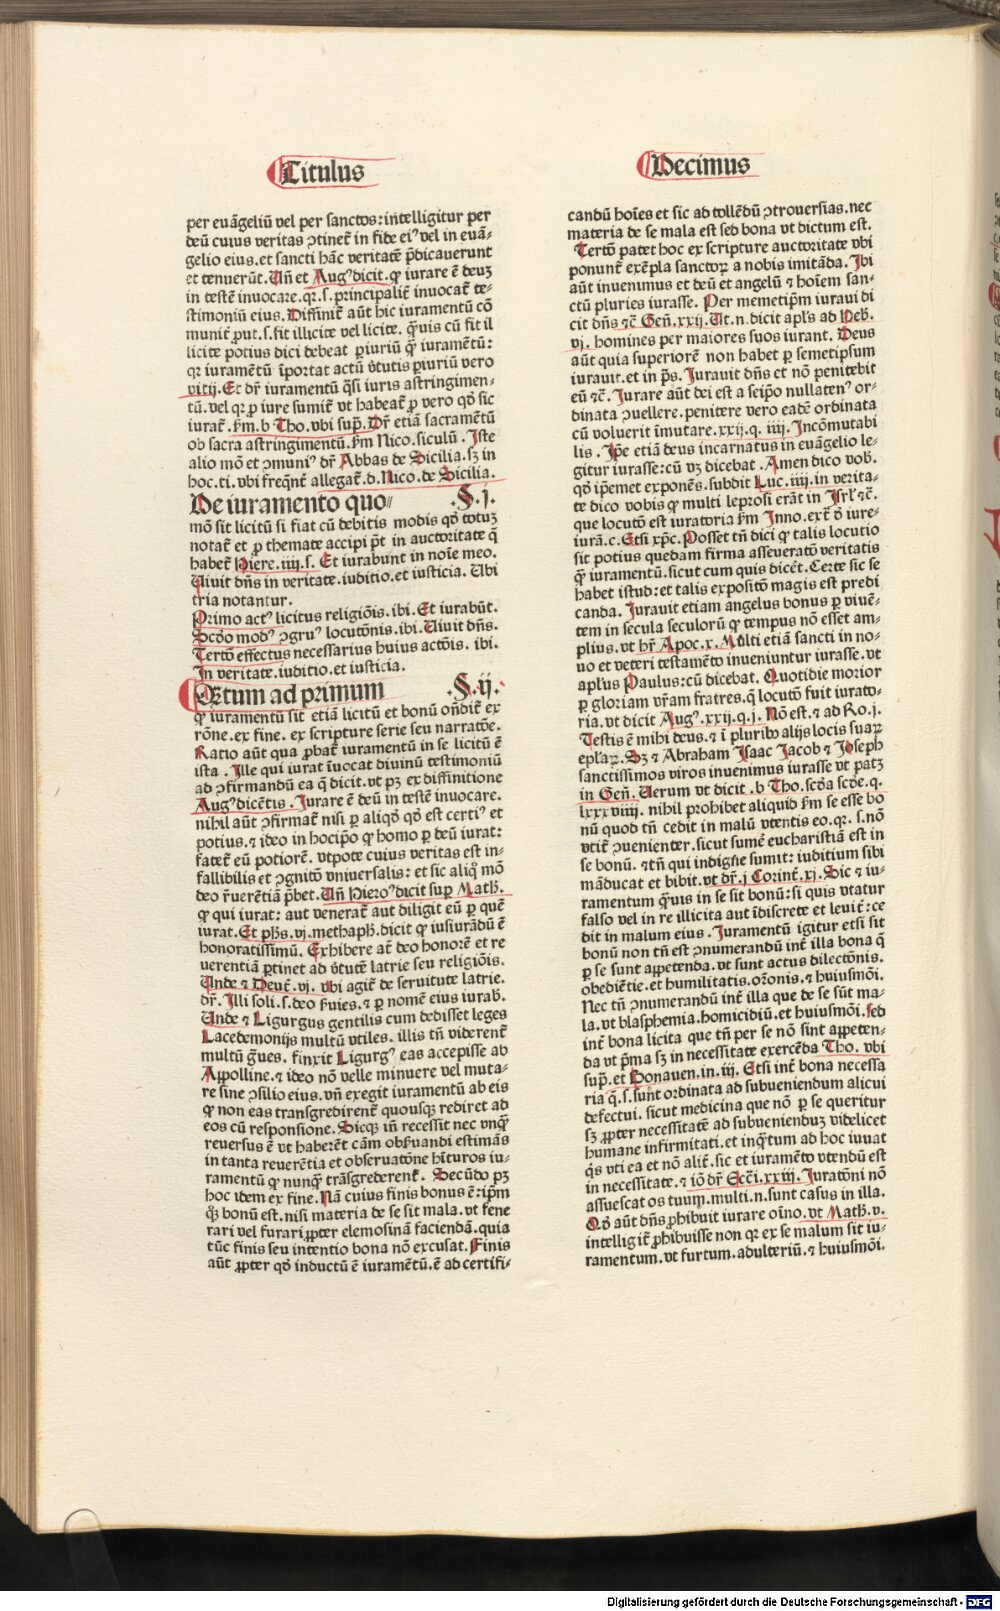 Titulus
per euāgeliū vel per sanctos: intelligitur per
deū cuius veritas ꝯtinet̄ in fide ei⁹ vel in euā-
gelio eius. et sancti hāc veritatē p̄dicauerunt
et tenuerūt. Un̄ et Aug⁹ dicit. ꝙ iurare ē deuꝫ
in testē inuocare. qꝛ. s. principalit̄ inuocat̄ te-
stimoniū eius. Diffinit̄ aūt hic iuramentū cō
munit̄ ꝓut. s. fit illicite vel licite. q̄uis cū fit il
licite potius dici debeat ꝑiuriū q̄ iuramētū:
qꝛ iuramētū īportat actū v̄tutis ꝑiuriū vero
vitij. Et dr̄ iuramentū q̄si iuris astringimen-
tū. vel qꝛ ꝓ iure sumit̄ vt habeat̄ ꝓ vero qd̄ sic
iurat̄. s̄m. b Tho. vbi sup̄. Dr̄ etiā sacramētū
ob sacra astringimentū. s̄m Nico. siculū. Iste
alio mō et ꝯmuni⁹ dr̄ Abbas de Sicilia. sꝫ in
hoc. ti. vbi freq̄nt̄ allegat̄. d. Nico. de Sicilia.
De iuramento quo⸗ .§. j.
mō sit licitū si fiat cū debitis modis qd̄ totuꝫ
notat̄ et ꝓ themate accipi p̄t in auctoritate q̄
habet̄ Hiere. iiij. s. Et iurabunt in noīe meo.
Uiuit dn̄s in veritate. iuditio. et iusticia. Ubi
tria notantur.
Primo act⁹ licitus religiōis. ibi. Et iurabūt.
Scd̄o mod⁹ ꝯgru⁹ locutōnis. ibi. Uiuit dn̄s.
Tertō effectus necessarius huius actōis. ibi.
In veritate. iuditio. et iusticia.
Qtum ad primum .§. ij.
ꝙ iuramentū sit etiā licitū et bonū on̄dit̄ ex
rōne. ex fine. ex scripture serie seu narratōe.
Ratio aūt qua ꝓbat̄ iuramentū in se licitū ē
ista. Ille qui iurat īuocat diuinū testimoniū
ad ꝯfirmandū ea q̄ dicit. vt pꝫ ex diffinitione
Aug⁹ dicētis. Iurare ē deū in testē inuocare.
nihil aūt ꝯfirmat̄ nisi ꝑ aliqd̄ qd̄ est certi⁹ et
potius. ⁊ ideo in hocip̄o ꝙ homo ꝑ deū iurat:
fatet̄ eū potiorē. vtpote cuius veritas est in-
fallibilis et ꝯgnitō vniuersalis: et sic aliq̄ mō
deo r̄uerētiā p̄bet. Un̄ Hiero⁹ dicit sup̄ Math̄.
ꝙ qui iurat: aut venerat̄ aut diligit eū ꝑ quē
iurat. Et ph̄s. vj. methaph̄. dicit ꝙ iusiurādū ē
honoratissimū. Exhibere at̄ deo honorē et re
uerentiā ꝑtinet ad v̄tutē latrie seu religiōis.
Unde ⁊ Deut̄. vj. vbi agit̄ de seruitute latrie.
dr̄. Illi soli. s. deo s̄uies. ⁊ ꝑ nomē eius iurab̄.
Unde ⁊ Ligurgus gentilis cum dedisset leges
Lacedemonijs multū vtiles. illis tn̄ viderent̄
multū ḡues. finxit Ligurg⁹ eas accepisse ab
Appolline. ⁊ ideo nō velle minuere vel muta-
re sine ꝯsilio eius. vn̄ exegit iuramentū ab eis
ꝙ non eas transgredirent̄ quousqꝫ rediret ad
eos cū responsione. Sicqꝫ in̄ recessit nec vnq̄
reuersus ē vt haberēt cām obs̄uandi estimās
in tanta reuerētia et obseruatōne hīturos iu-
ramentū ꝙ nunq̄ trāsgrederent̄. Secūdo pꝫ
hoc idem ex fine. Nā cuius finis bonus ē: ip̄m
qꝫ bonū est. nisi materia de se sit mala. vt fene
rari vel furari ꝓpter elemosinā faciendā. quia
tūc finis seu intentio bona nō excusat. Finis
aūt ꝓpter qd̄ inductū ē iuramētū. ē ad certifi-
Decimus
candū hoīes et sic ad tollēdū ꝯtrouersias. nec
materia de se mala est sed bona vt dictum est.
Tertō patet hoc ex scripture auctoritate vbi
ponunt̄ exēpla sanctoꝝ a nobis imitāda. Ibi
aūt inuenimus et deū et angelū ⁊ hoīem san-
ctū pluries iurasse. Per memetip̄m iuraui di
cit dn̄s ⁊c̄ Gen̄. xxij. Ut. n. dicit apl̄s ad Heb̄.
vj. homines per maiores suos iurant. Deus
aūt quia superiorē non habet ꝑ semetipsum
iurauit. et in ps̄. Iurauit dn̄s et nō penitebit
eū ⁊c̄. Iurare aūt dei est a seip̄o nullaten⁹ or-
dinata ꝯuellere. penitere vero eadē ordinata
cū voluerit īmutare. xxij. q. iiij. Incōmutabi
lis. Ip̄e etiā deus incarnatus in euāgelio le-
gitur iurasse: cū vꝫ dicebat. Amen dico vob̄.
qd̄ ip̄emet exponēs. subdit Luc. iiij. in verita-
te dico vobis ꝙ multi leprosi erāt in Isrl̄ ⁊c̄.
que locutō est iuratoria s̄m Inno. ext̄ d̄ iure-
iurā. c. Etsi xp̄c. Posset tn̄ dici ꝙ talis locutio
sit potius quedam firma asseueratō veritatis
q̄ iuramentū. sicut cum quis dicēt. Certe sic se
habet istud: et talis expositō magis est predi
canda. Iurauit etiam angelus bonus ꝑ viuē-
tem in secula seculorū ꝙ tempus nō esset am-
plius. vt hr̄ Apoc. x. Multi etiā sancti in no-
uo et veteri testamēto inueniuntur iurasse. vt
apl̄us Paulus: cū dicebat. Quotidie morior
ꝑ gloriam vr̄am fratres. q̄ locutō fuit iurato-
ria. vt dicit Aug⁹. xxij. q. j. Nō est. ⁊ ad Ro. j.
Testis ē mihi deus. ⁊ ī pluribꝰ alijs locis suaꝝ
epl̄aꝝ. Sꝫ ⁊ Abraham Isaac Jacob ⁊ Joseph
sanctissimos viros inuenimus iurasse vt patꝫ
in Gen̄. Uerum vt dicit. b Tho. scd̄a scd̄e. q.
lxxxviiij. nihil prohibet aliquid s̄m se esse bo
nū quod tn̄ cedit in malū vtentis eo. qꝛ. s. nō
vtit̄ ꝯuenienter. sicut sumē eucharistiā est in
se bonū. ⁊tn̄ qui indigne sumit: iuditium sibi
māducat et bibit. vt dr̄. j Corint̄. xj. Sic ⁊ iu-
ramentum q̄uis in se sit bonū: si quis vtatur
falso vel in re illicita aut īdiscrete et leuit̄: ce
dit in malum eius. Iuramentū igitur etsi sit
bonū non tn̄ est ꝯnumerandū int̄ illa bona q̄
ꝑ se sunt appetenda. vt sunt actus dilectōnis.
obediētie. et humilitatis. or̄onis. ⁊ huiusmōi.
Nec tn̄ ꝯnumerandū int̄ illa que de se sūt ma-
la. vt blasphemia. homicidiū. et huiusmōi. sed
int̄ bona licita que tn̄ per se nō sint appeten-
da vt p̄ma sꝫ in necessitate exercēda Tho. vbi
sup̄. et Bonauen. in. iij. Etsi int̄ bona necessa
ria q̄. s. sunt ordinata ad subueniendum alicui
defectui. sicut medicina que nō ꝑ se queritur
sꝫ ꝓpter necessitatē ad subueniendūꝫ videlicet
humane infirmitati. et inq̄tum ad hoc iuuat
q̄s vti ea et nō alit̄. sic et iuramēto vtendū est
in necessitate. ⁊ iō dr̄ Eccī. xxiij. Iuratōni nō
assuescat os tuum. multi. n. sunt casus in illa.
Qd̄ aūt dn̄s ꝓhibuit iurare oīno. vt Math̄. v.
intelligit̄ ꝓhibuisse non qꝛ ex se malum sit iu-
ramentum. vt furtum. adulteriū. ⁊ huiusmōi.
Digitalisierung gefördert durch die Deutsche Forschungsgemeinschaft - DFG